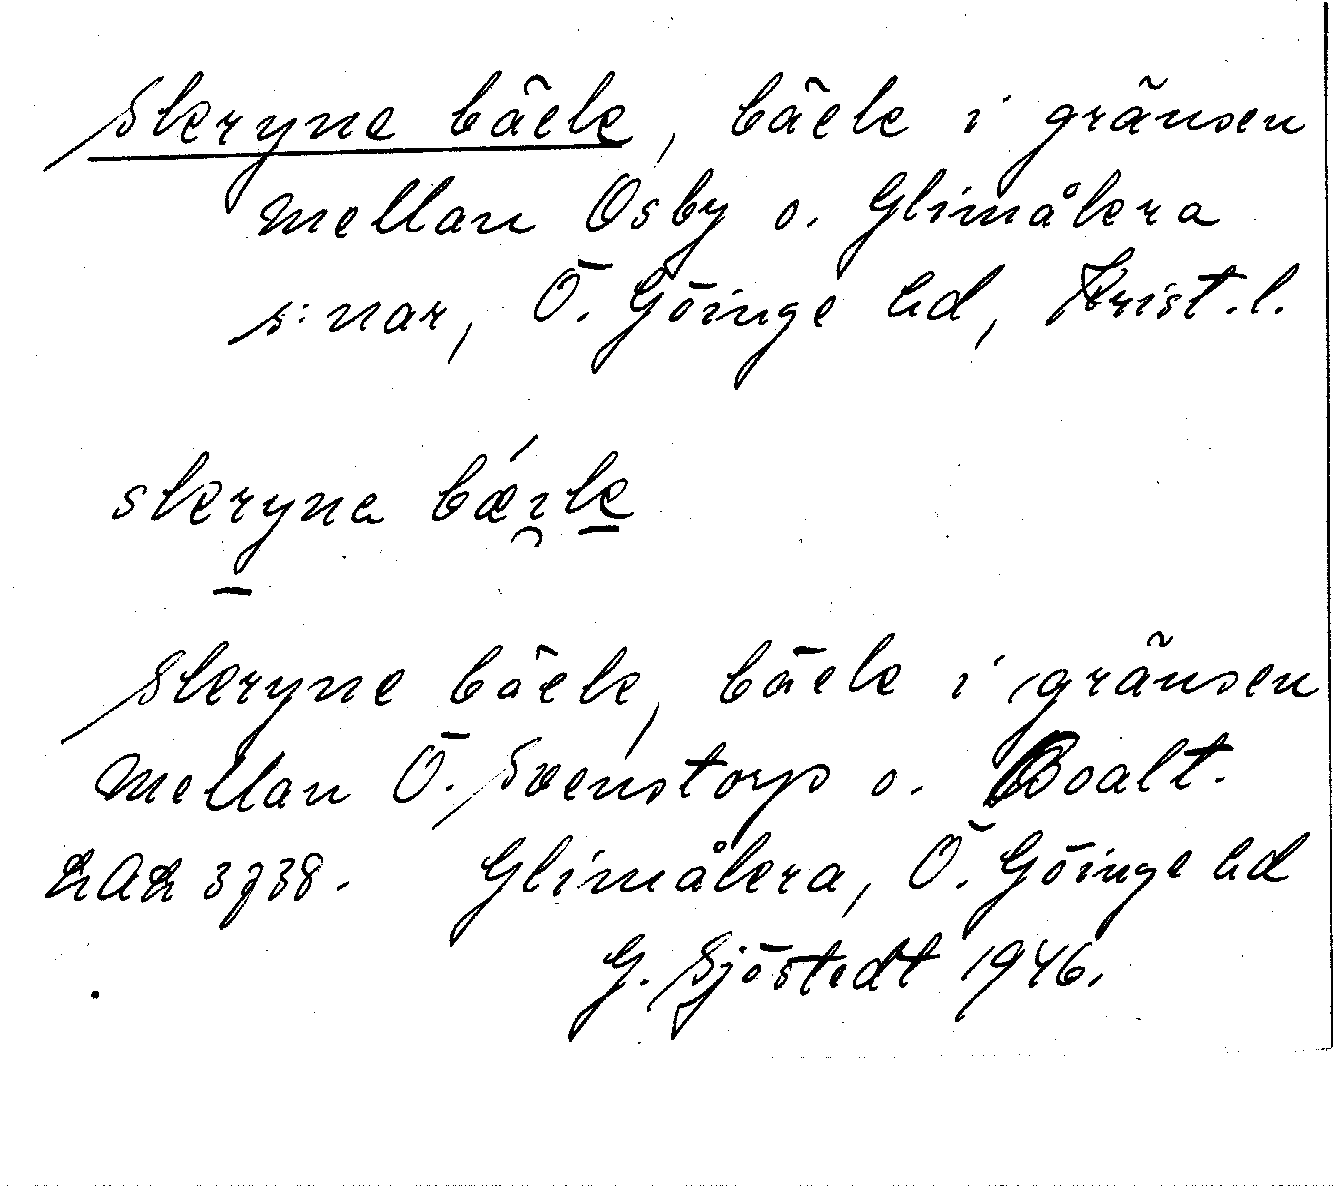 Skryne bäck, bäck i gränsen
mellan Osby o. Glimåkra
s:nar, Ö. Göinge hd, Krist.l.
skryna bǽık
Skryne bäck, bäck i gränsen
mellan Ö. Svenstorp o. Boalt.
LAL 3738. Glimåkra, Ö. Göinge hd
G. Sjöstedt 1946.